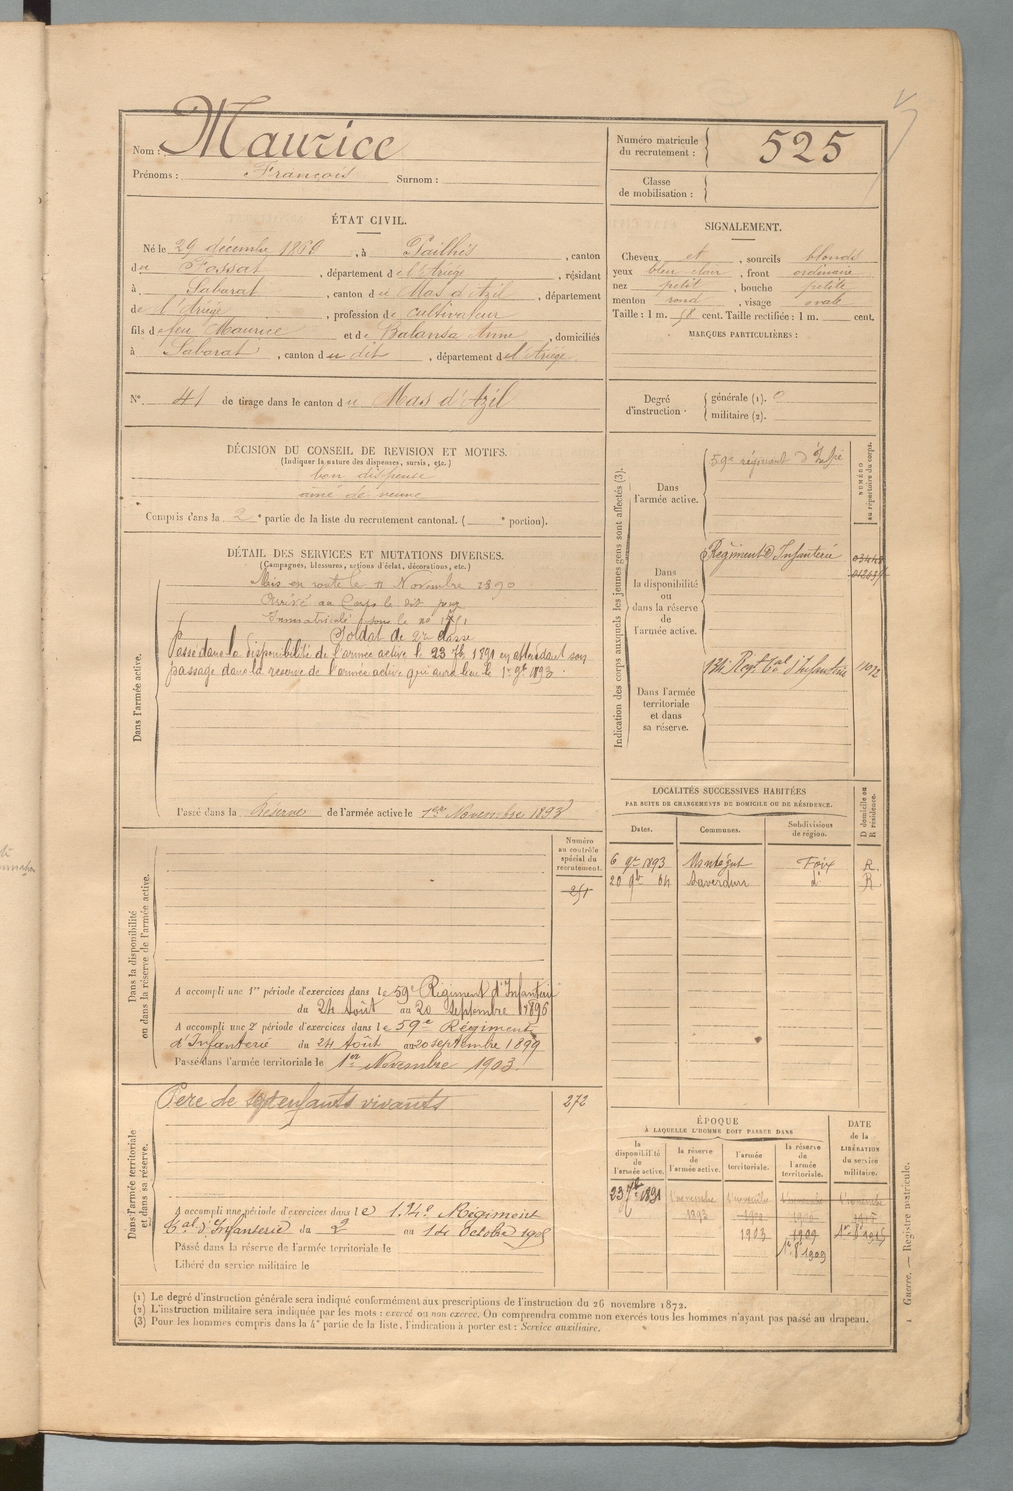 Nom : Maurice
Prénoms : François Surnom :
Numéro matricule du recrutement : 525
Classe de mobilisation :
ÉTAT CIVIL.
Né le 29 décembre 18 , à Pailhès , canton
du Fossat , département de l'Ariège , résidant
à Sabarat , canton du Mas d'Azil , département
de l'Ariège , profession de cultivateur
fils de feu Maurice et de Balansa Anne , domiciliés
à Sabarat , canton du dit , département de l'Ariège.
SIGNALEMENT.
Cheveux et , sourcils blonds
yeux bleu clair , front ordinaire
nez petit , bouche petite
menton rond , visage ovale
Taille : 1 m. 58 cent. Taille rectifiée : 1 m. cent.
MARQUES PARTICULIÈRES :
N° 41 de tirage dans le canton du Mas d'Azil
Degré d'instruction
générale (1).
militaire (2).
DÉCISION DU CONSEIL DE REVISION ET MOTIFS.
(Indiquer la nature des dispenses, sursis, etc.)
bon dispensé
aîné de veuve
Compris dans la 2e partie de la liste du recrutement cantonal. ( e portion).
DÉTAIL DES SERVICES ET MUTATIONS DIVERSES.
(Campagnes, blessures, actions d'éclat, décorations, etc.)
Dans l'armée active.
Mis en route le 11 Novembre 1890
Arrivé au Corps le dit jour
Immatriculé sous le no
Soldat de 2e classe
Passé dans la disponibilité de l'armée active le 23 7bre 1891 en attendant son
passage dans la réserve de l'armée active qui aura lieu le 1er 9bre 1893
Passé dans la Réserve de l'armée active le 1er Novembre 1893
Indication des corps auxquels les jeunes gens sont affectés (3).
NUMÉRO au répertoire du corps.
Dans l'armée active.
59e régiment d'Infie
Dans la disponibilité ou dans la réserve de l'armée active.
Régiment d'Infanterie
Dans l'armée territoriale et dans sa réserve.
134e Regt tal d'Infanterie
LOCALITÉS SUCCESSIVES HABITÉES
PAR SUITE DE CHANGEMENTS DE DOMICILE OU DE RÉSIDENCE.
Dates. Communes. Subdivisions de région. D domicile ou R résidence.
6 9bre 1893 Montégut Foix R.
20 9bre 04 Saverdun d° R
Dans la disponibilité ou dans la réserve de l'armée active.
Numéro au contrôle spécial du recrutement.
251
A accompli une 1re période d'exercices dans le 59e Régiment d'Infanterie
du 24 Août au 20 Septembre 1896
A accompli une 2e période d'exercices dans le 59e Régiment
d'Infanterie du 24 Août au 20 septembre 1899
Passé dans l'armée territoriale le 1er Novembre 1903
Dans l'armée territoriale et dans sa réserve.
Père de sept enfants vivants
272
A accompli une période d'exercices dans le 134e Régiment
tal d'Infanterie du 2 au 14 Octobre 1905
Passé dans la réserve de l'armée territoriale le
Libéré du service militaire le
ÉPOQUE
À LAQUELLE L'HOMME DOIT PASSER DANS
la disponibilité de l'armée active.
la réserve de l'armée active.
l'armée territoriale.
la réserve de l'armée territoriale.
DATE de la LIBÉRATION du service militaire.
23 7bre 1891 1er novembre 1893 1er novembre
1903 1909
1er 8bre 1909
(1) Le degré d'instruction générale sera indiqué conformément aux prescriptions de l'instruction du 26 novembre 1872.
(2) L'instruction militaire sera indiquée par les mots : exercé ou non exercé. On comprendra comme non exercés tous les hommes n'ayant pas passé au drapeau.
(3) Pour les hommes compris dans la 4e partie de la liste, l'indication à porter est : Service auxiliaire.
Guerre. — Registre matricule.